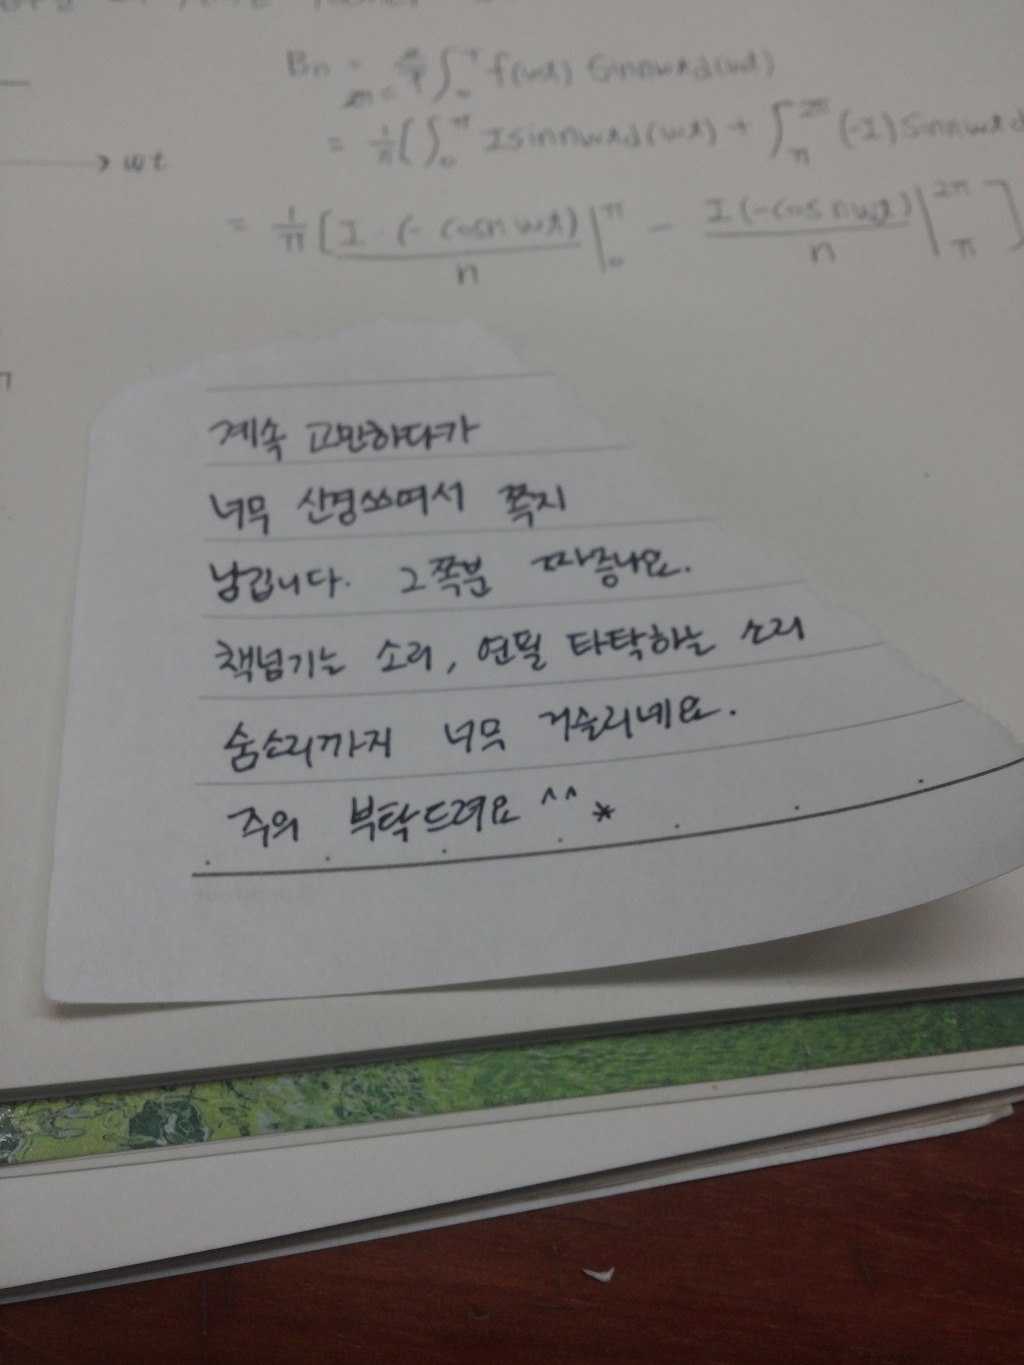 Bn = f(wt) sinnwtd(wt)
= 1/π [ ∫₀^π I sinnwtd(wt) + ∫_π^2π (-I) sinnwtd
→ wt
= 1/π [ I · (- cosn wt) / n |₀^π - I (-cos nwt) / n |_π^2π ]
계속 고민하다가
너무 신경쓰여서 쪽지
남깁니다. 그쪽분 짜증나요.
책넘기는 소리, 연필 타탁하는 소리
숨소리까지 너무 거슬리네요.
주의 부탁드려요 ^^*